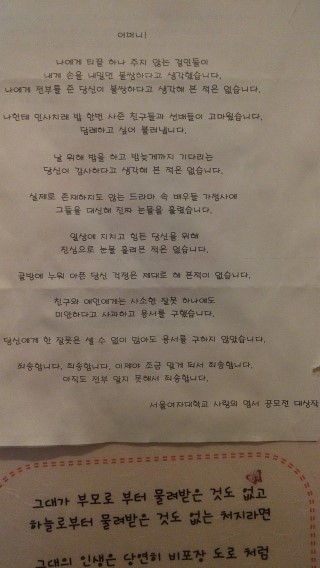 어머니!
나에게 티끌 하나 주지 않는 걸인들이
내게 손을 내밀면 불쌍하다고 생각했습니다.
나에게 전부를 준 당신이 불쌍하다고 생각해 본 적은 없습니다.
나한테 인사치레 밥 한번 사준 친구들과 선배들이 고마웠습니다.
답례하고 싶어 불러냅니다.
날 위해 밥을 하고 밤늦게까지 기다리는
당신이 감사하다고 생각해 본 적은 없습니다.
실제로 존재하지도 않는 드라마 속 배우들 가정사에
그들을 대신해 진짜 눈물을 흘렸습니다.
일상에 지치고 힘든 당신을 위해
진심으로 눈물 흘려본 적은 없습니다.
골방에 누워 아픈 당신 걱정은 제대로 해 본적이 없습니다.
친구와 애인에게는 사소한 잘못 하나에도
미안하다고 사과하고 용서를 구했습니다.
당신에게 한 잘못은 셀 수 없이 많아도 용서를 구하지 않았습니다.
죄송합니다. 죄송합니다. 이제야 조금 알게 돼서 죄송합니다.
아직도 전부 알지 못해서 죄송합니다.
서울여자대학교 사랑의 엽서 공모전 대상작
그대가 부모로 부터 물려받은 것도 없고
하늘로부터 물려받은 것도 없는 처지라면
그대의 인생은 당연히 비포장 도로 처럼